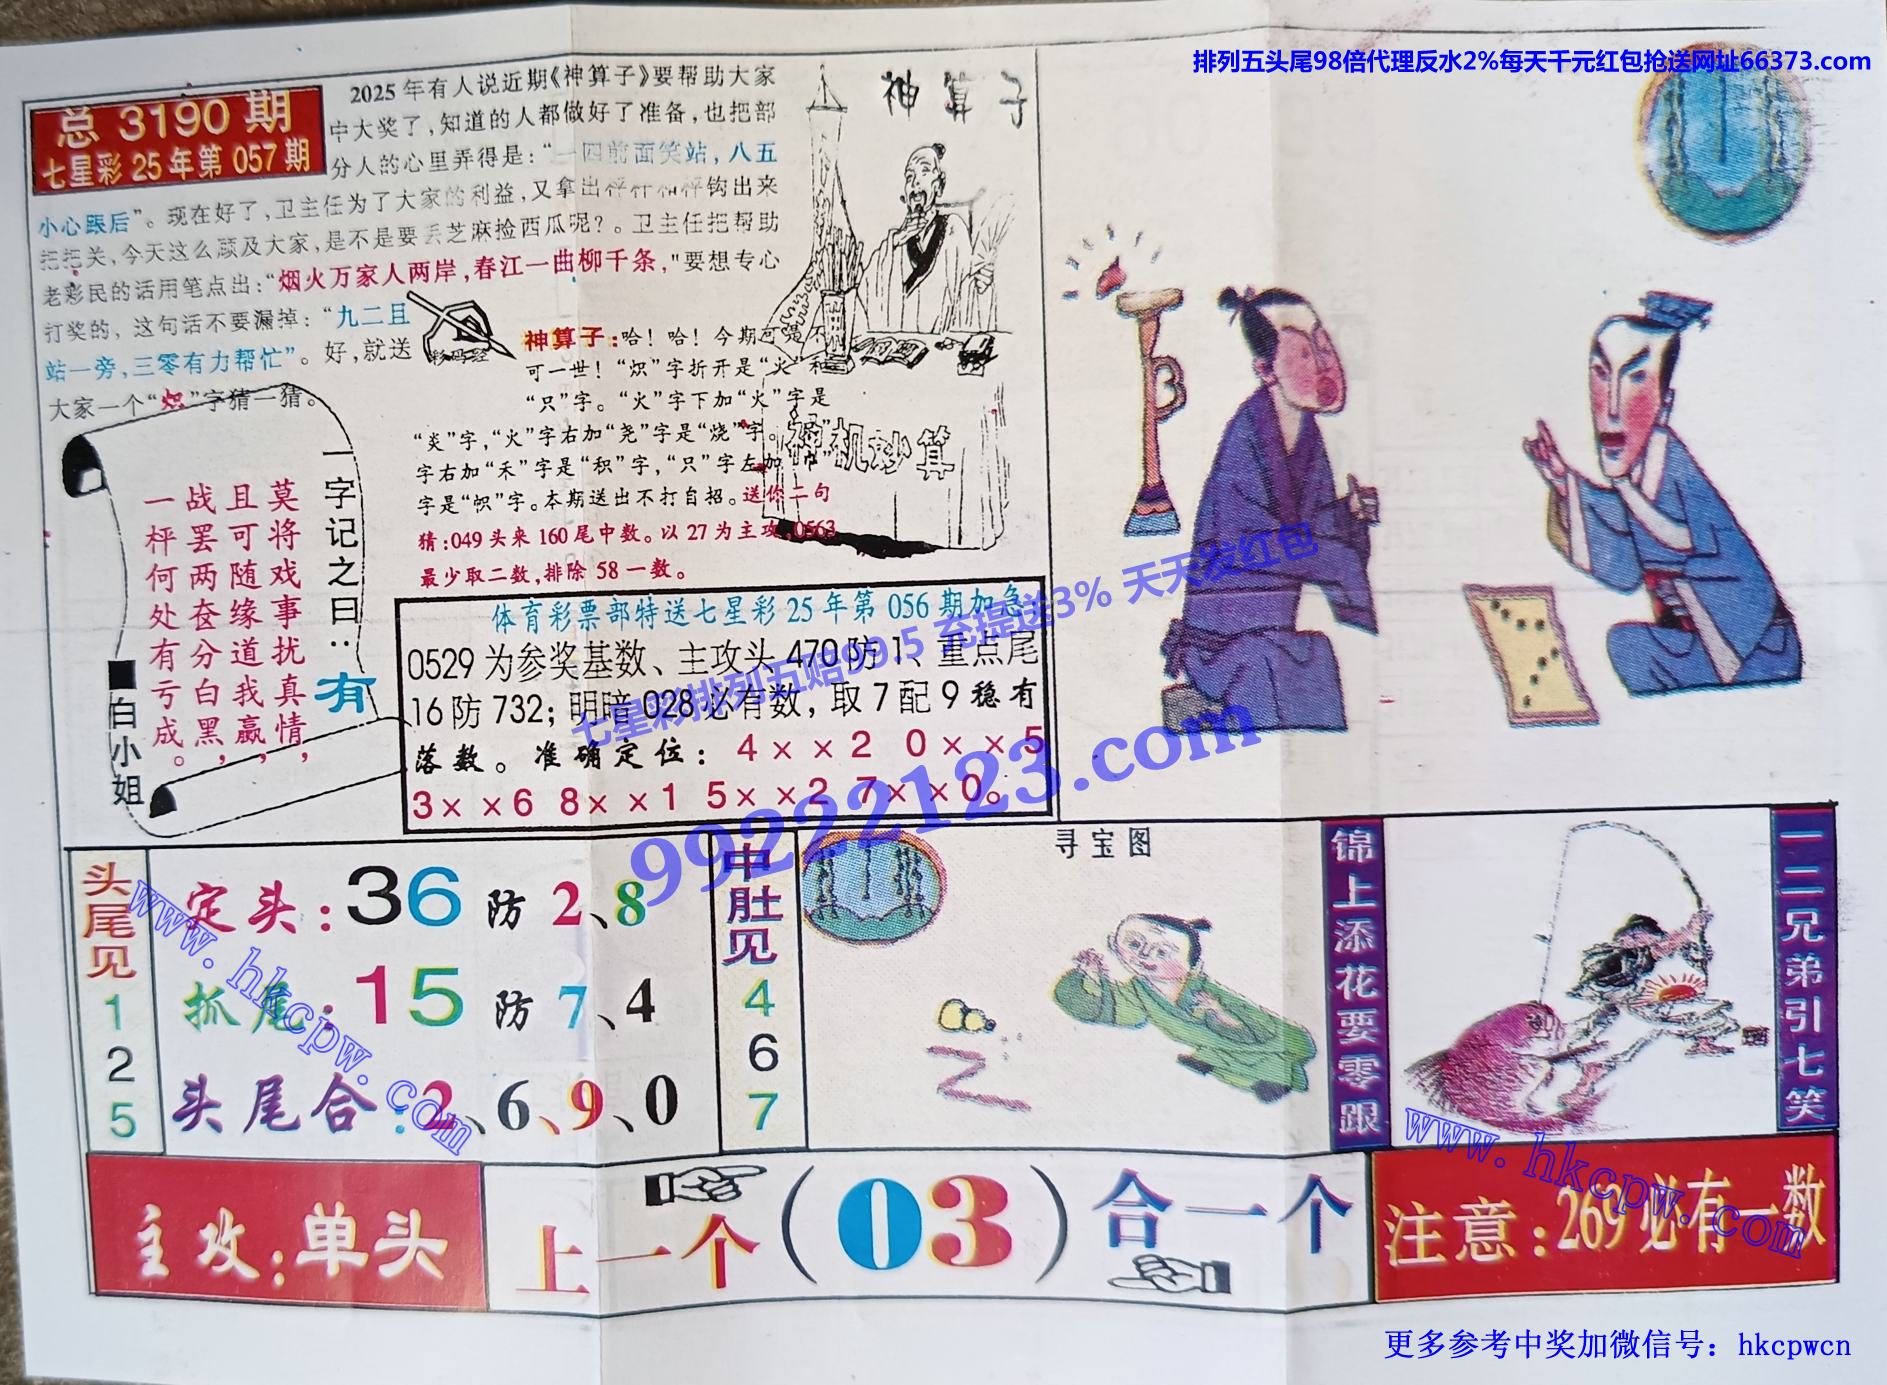 排列五头尾98倍代理反水2%每天千元红包抢送网址66373.com
总 3190 期
七星彩 25 年第 057 期
2025 年有人说近期《神算子》要帮助大家
中大奖了,知道的人都做好了准备,也把部
分人的心里弄得是:“一四前面笑站,八五
小心跟后”。现在好了,卫主任为了大家的利益,又拿出秤杆和秤钩出来
把把关,今天这么顾及大家,是不是要丢芝麻捡西瓜呢?。卫主任把帮助
老彩民的话用笔点出:“烟火万家人两岸,春江一曲柳千条,"要想专心
打奖的, 这句话不要漏掉: “九二且
站一旁,三零有力帮忙”。好,就送
大家一个“炽”字猜一猜。
神 算 子
神算子:哈! 哈! 今期可是不
可一世! “炽”字折开是“火”和
“只”字。“火”字下加“火”字是
“炎”字,“火”字右加“尧”字是“烧”字。
字右加“禾”字是“积”字,“只”字左加“巾”
字是“帜”字。本期送出不打自招。送你二句
猜:049 头来 160 尾中数。以 27 为主攻,0563
最少取二数,排除 58 一数。
神机妙算
一字记之曰:有
莫将戏事扰真情,
且可随缘道我赢,
战罢两奁分白黑,
一枰何处有亏成。
白小姐
体育彩票部特送七星彩 25 年第 056 期加急
0529 为参奖基数、主攻头 470 防 1、重点尾
16 防 732; 明暗 028 必有数, 取 7 配 9 稳有
落数。准确定位: 4××2 0××5
3××6 8××1 5××2 7××0。
七星彩排列五赔99.5 充提送3% 天天发红包
99222123.com
头尾见
1
2
5
定头:36 防 2、8
抓尾:15 防 7、4
头尾合:2、6、9、0
www.hkcpw.com
中肚见
4
6
7
寻宝图
锦上添花要零跟
一二兄弟引七笑
www.hkcpw.com
主攻:单头
上一个(03)合一个
注意:269必有一数
更多参考中奖加微信号: hkcpwcn